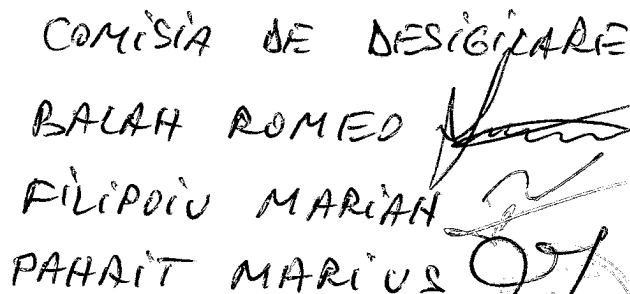 COMiSiA DE DESiGiLARE
BALAN ROMEO
FiLiPOiU MARiAN
PANAiT MARiUS